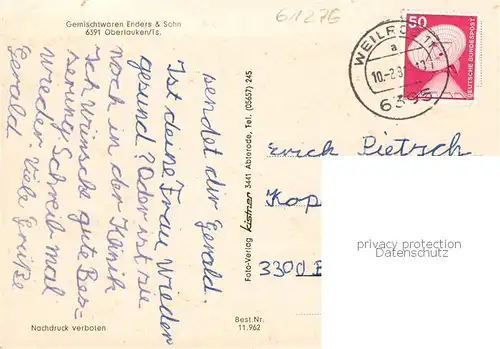 Gemischtwaren Enders & Sohn
6391 Oberlauken/Ts.
61276
sendet dir Gerald.
Ist deine Frau wieder
gesund? Oder ist sie
noch in der Klinik
Ich wünsche gute Bes-
serung. Schreib mal
wieder Viele Grüße
Gerald
Nachdruck verboten
Best.Nr.
11.962
Foto-Verlag Kistner 3441 Abterode, Tel. (05657) 245
WEILRO
a
10.-2.8
6395
50
DEUTSCHE BUNDESPOST
Erich Pietsch
Kop
3300 B
privacy protection
Datenschutz